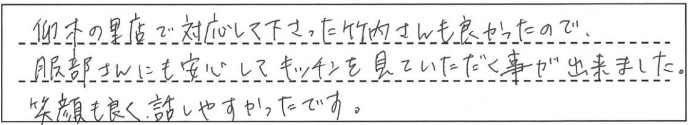 仰木の里店で対応して下さった竹内さんも良かったので、
服部さんにも安心してキッチンを見ていただく事が出来ました。
笑顔も良く、話しやすかったです。